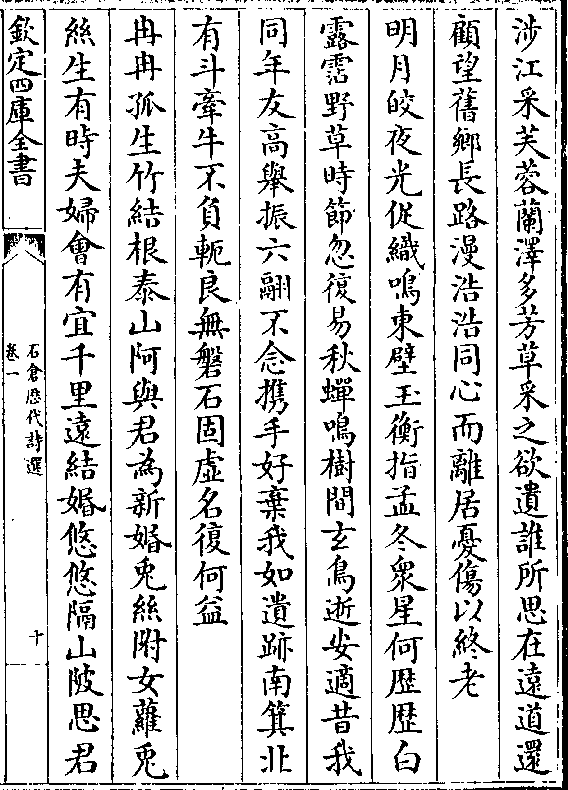 涉江采芙蓉蘭澤多芳草采之欲遺誰所思在遠道還
顧望舊鄉長路漫浩浩同心而離居憂傷以終老
明月皎夜光促織鳴東壁玉衡指孟冬衆星何歴歴白
露霑野草時節忽復易秋蟬鳴樹間玄鳥逝安適昔我
同年友高舉振六翮不念攜手好棄我如遺跡南箕北
有斗牽牛不負軛良無磐石固虛名復何益
冉冉孤生竹結根泰山阿與君為新婚兎絲附女蘿兎
絲生有時夫婦會有宜千里遠結婚悠悠隔山陂思君
欽定四庫全書
石倉歴代詩選
卷一
十